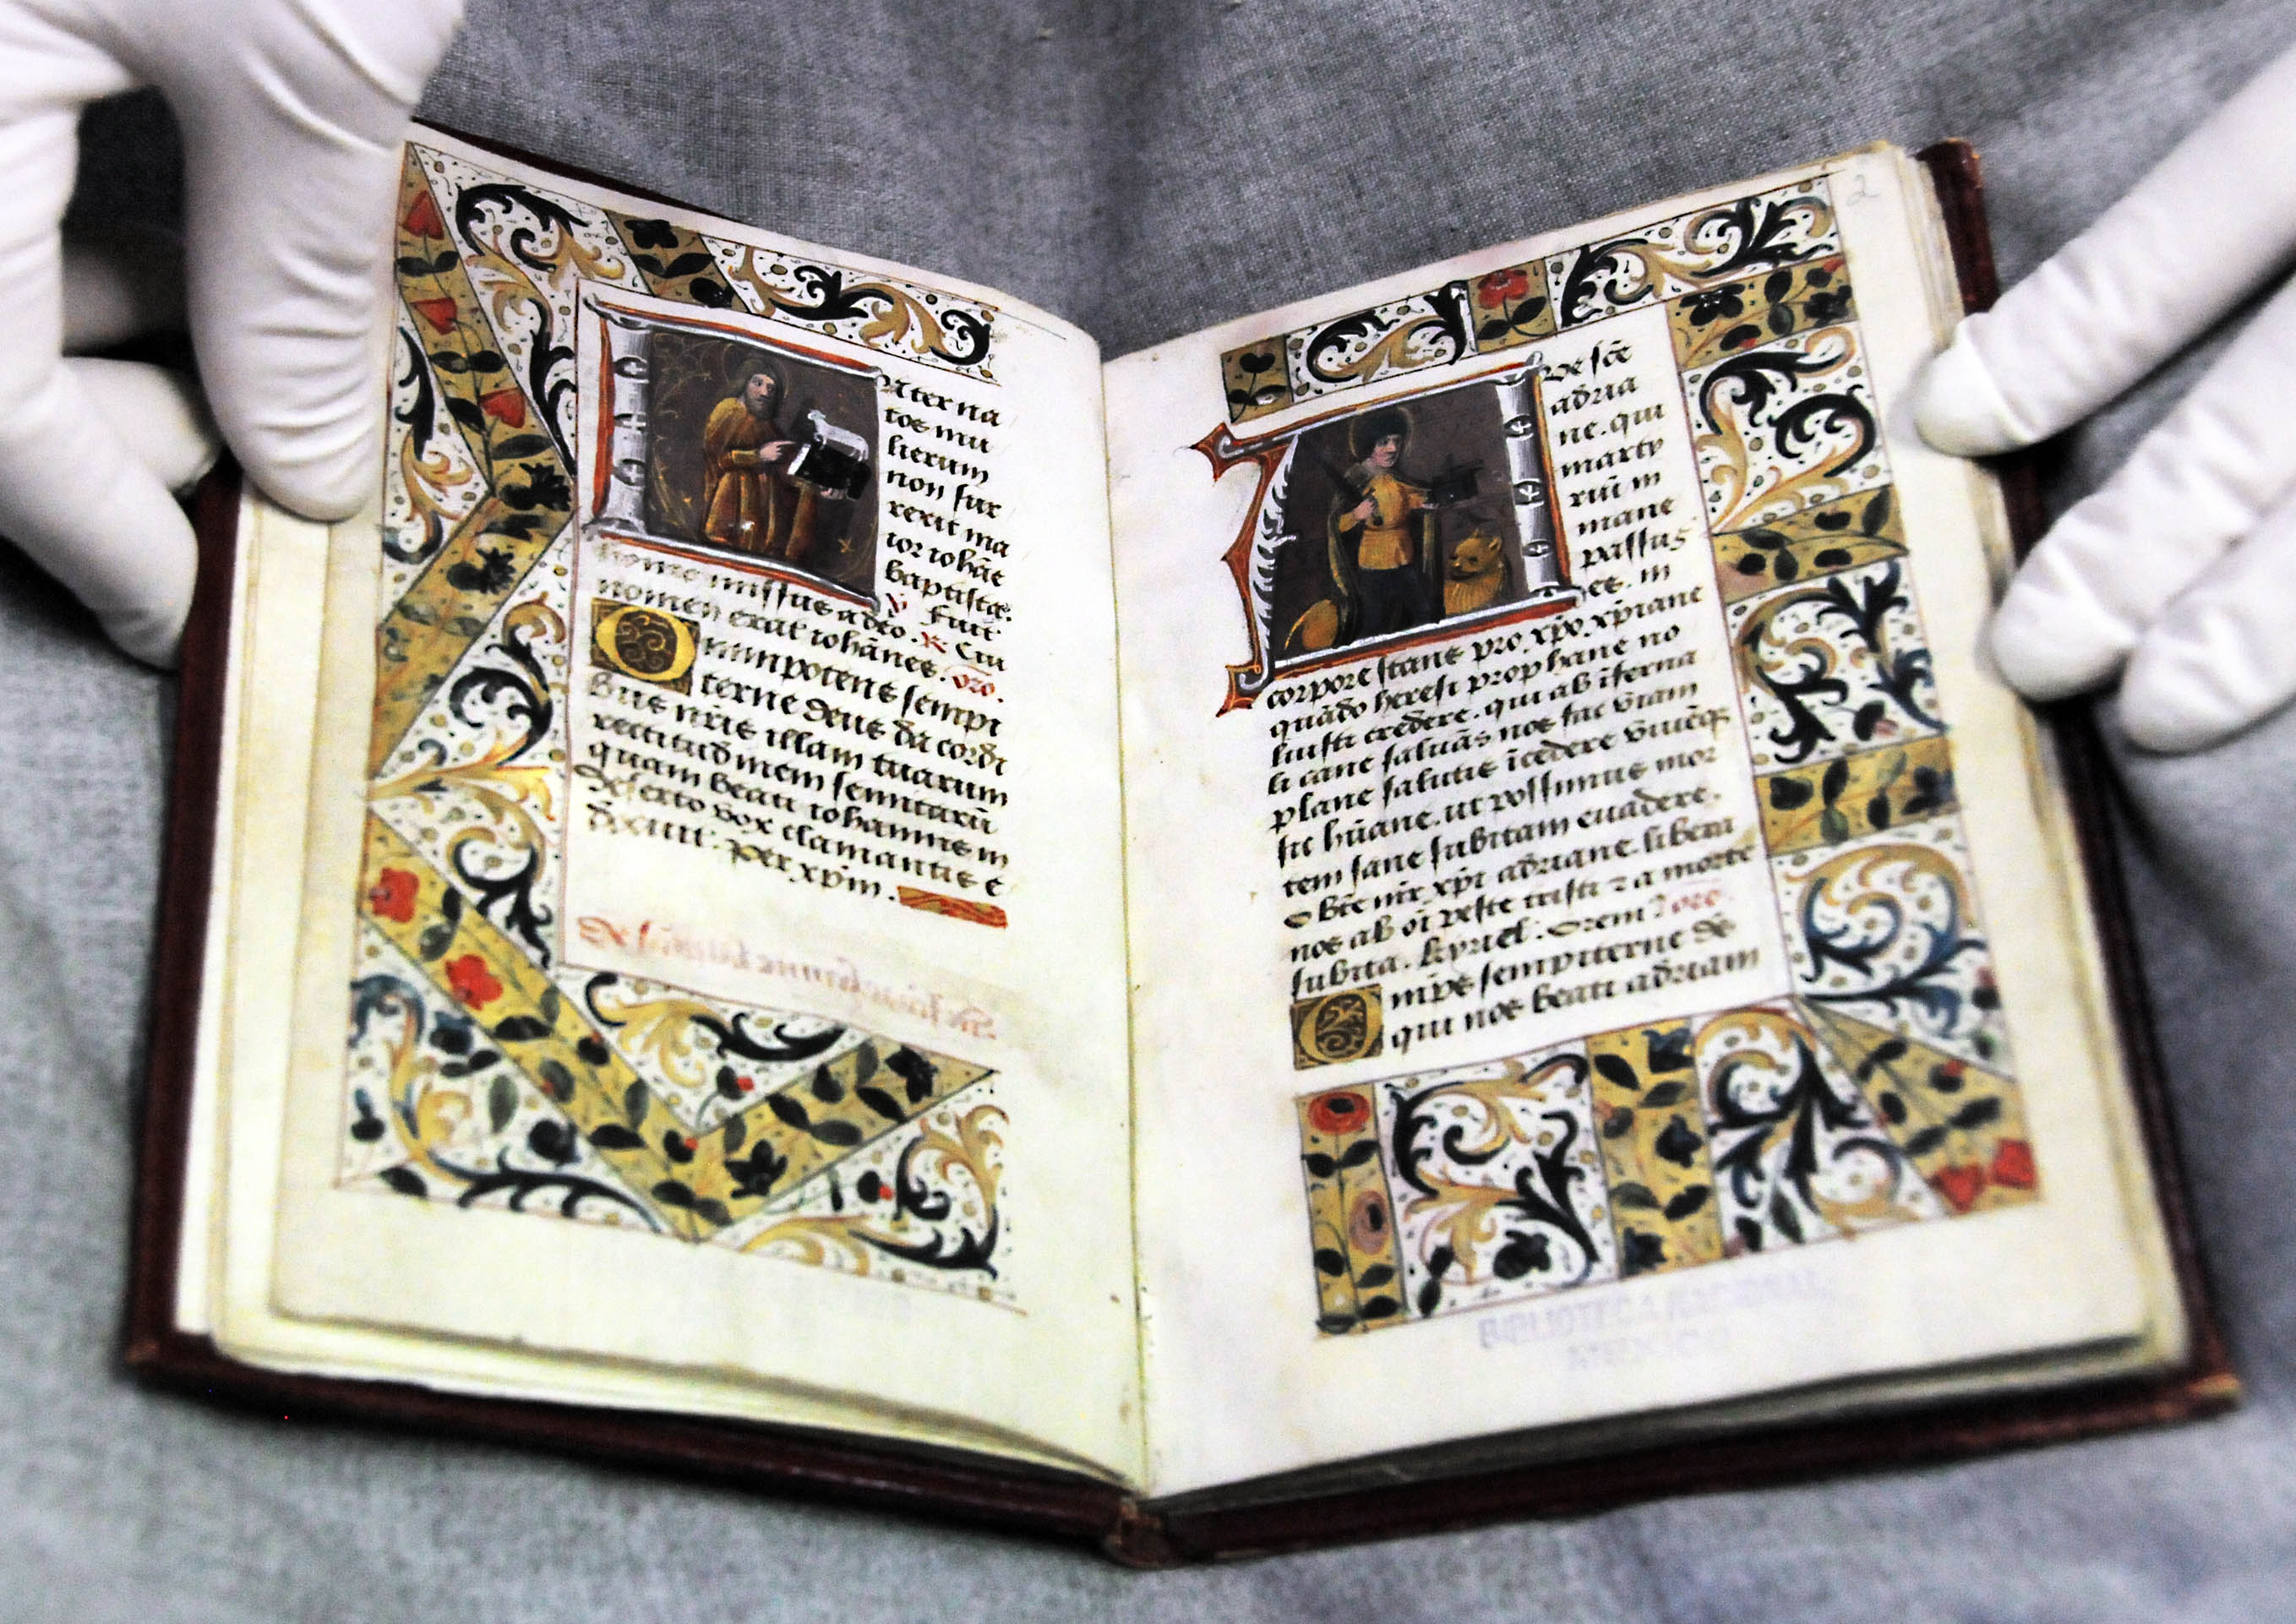 nter na
tos mu
lierum
non sur
rexit ma
ior iohãe
baptista.
℣ Fuit
homo missus a deo. ℟ Cui
nomen erat iohães. oro.
Omnipotens sempi
terne deus da cordi
bus nris illam tuarum
rectitudinem semitarũ
quam beati iohannis in
deserto vox clamantis e
dixuit. Per xpm.
2
Ave sce
adria
ne. qui
marty
riũ in
mane
passus
es. in
corpore stans pro xpo. xpiane
quãdo heresi prophane no
luisti credere. qui ab iferna
li cane saluãs nos fac viam
plane salutis icedere vniuq;
sic hũane. ut possimus mor
tem sane subitam euadere.
O bte mir xpi adriane. libera
nos ab oi peste tristi ⁊ a morte
subita. kyriel. Orem⁹ oro.
Omps sempiterne ds
qui nos beati adriani
BIBLIOTECA NACIONAL
MEXICO